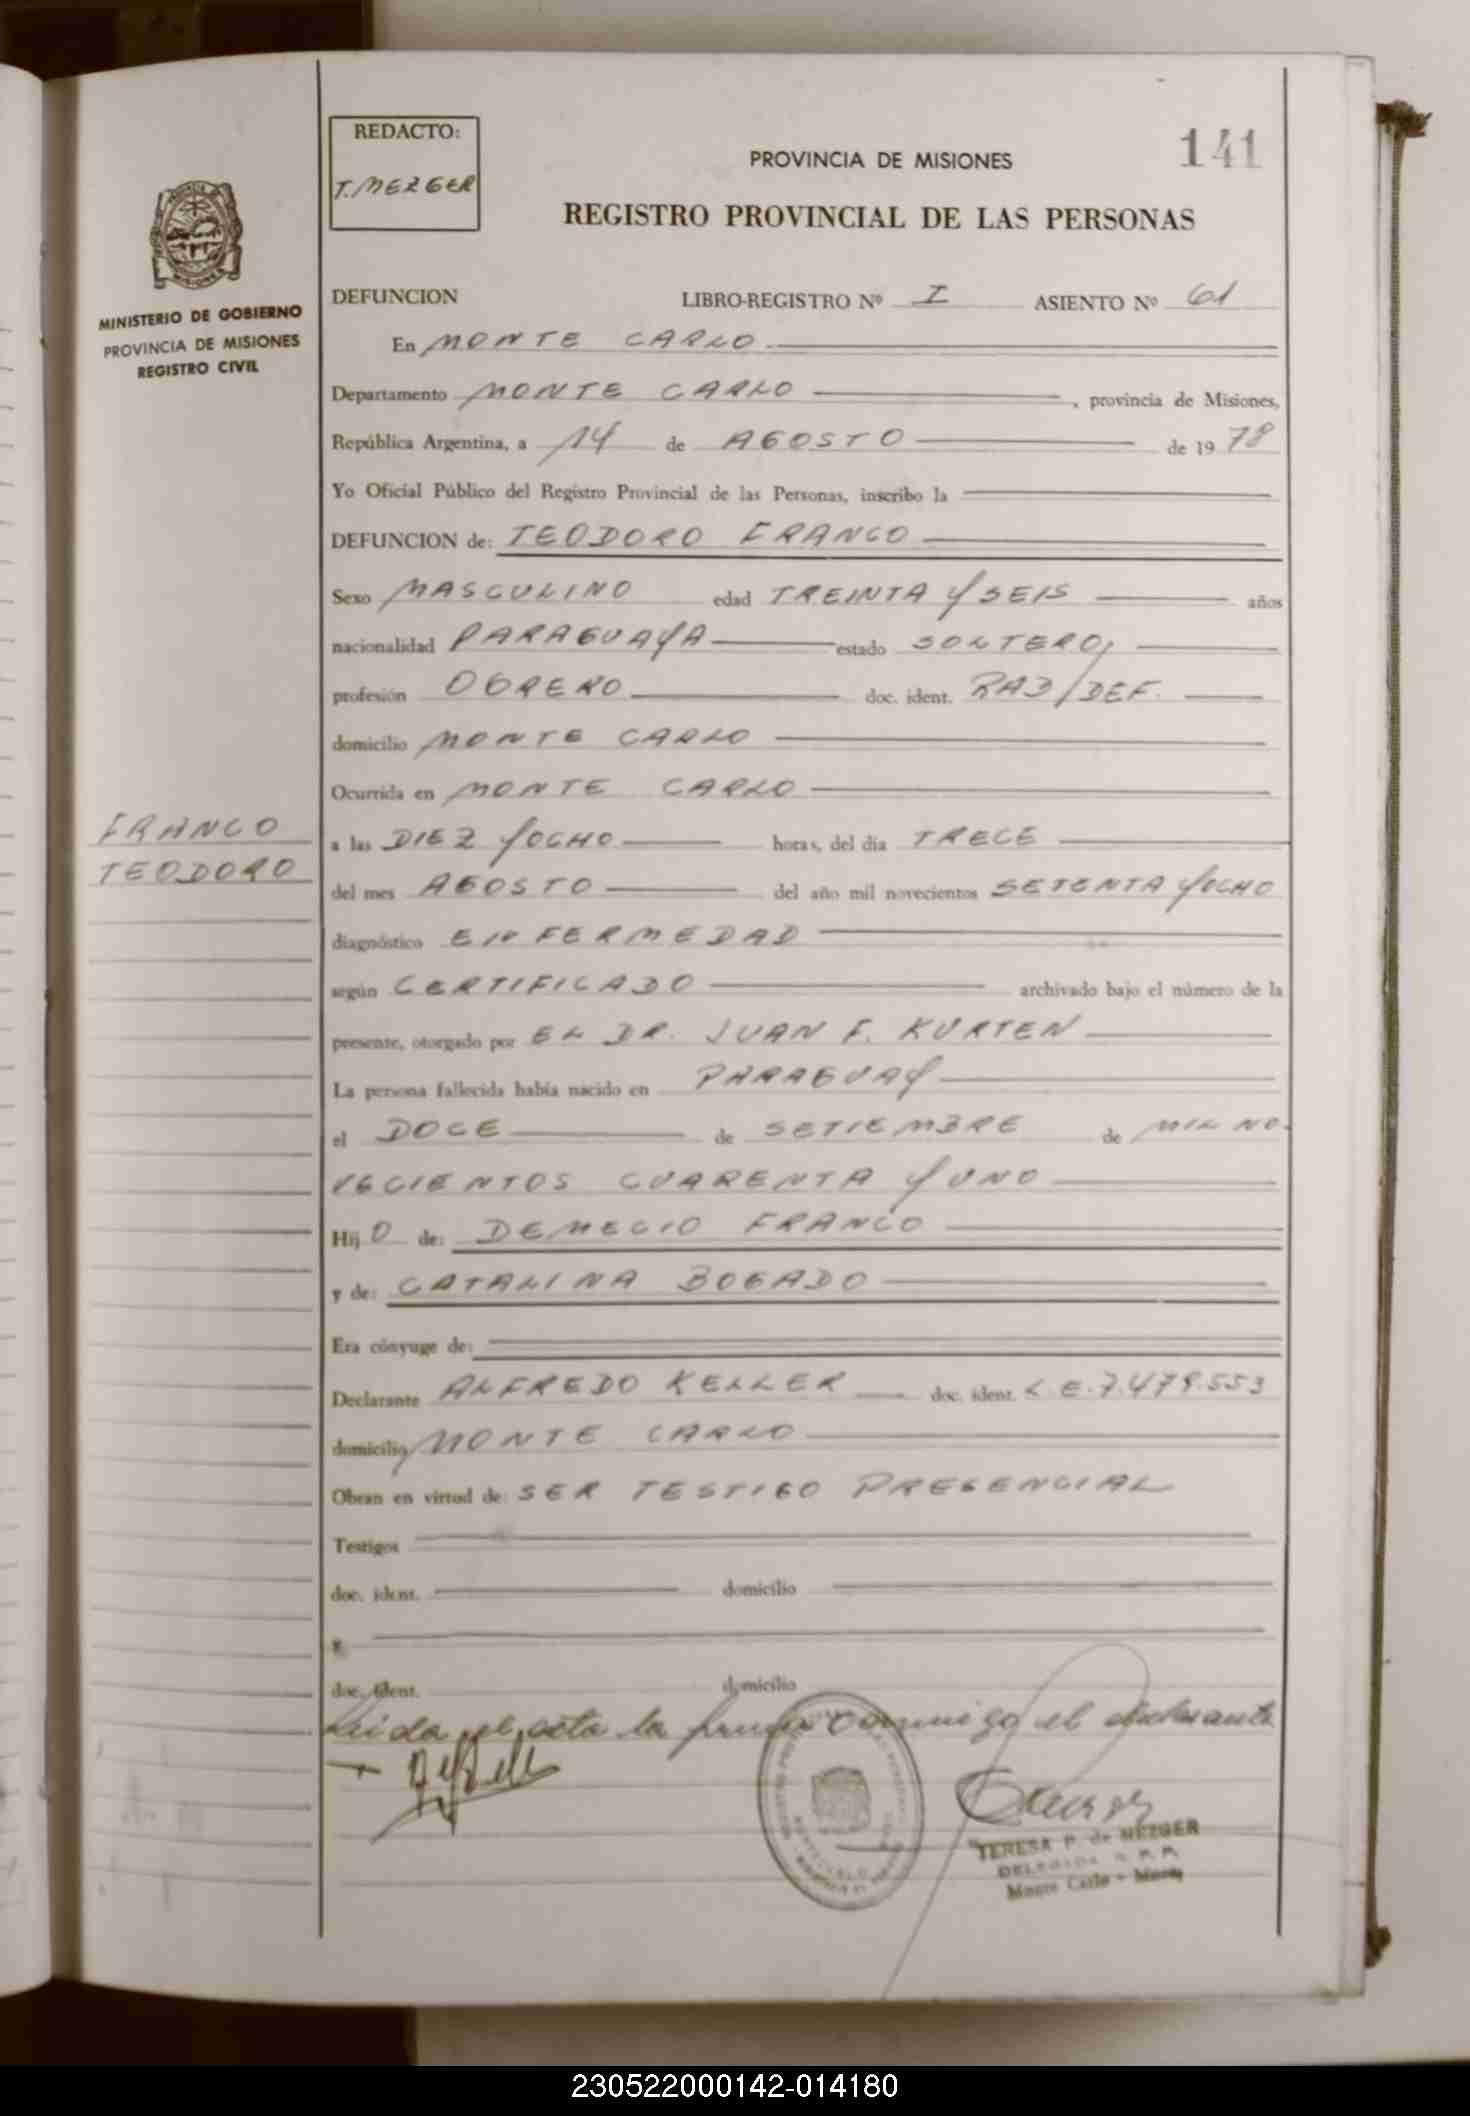 REDACTO:
T. MEZGER
141
PROVINCIA DE MISIONES
REGISTRO PROVINCIAL DE LAS PERSONAS
MINISTERIO DE GOBIERNO
PROVINCIA DE MISIONES
REGISTRO CIVIL
DEFUNCION LIBRO-REGISTRO Nº I ASIENTO Nº 61
En MONTE CARLO
Departamento MONTE CARLO, provincia de Misiones,
República Argentina, a 14 de AGOSTO de 1978
Yo Oficial Público del Registro Provincial de las Personas, inscribo la
DEFUNCION de: TEODORO FRANCO
Sexo MASCULINO edad TREINTA Y SEIS años
nacionalidad PARAGUAYA estado SOLTERO,
profesión OBRERO doc. ident. RAD/DEF.
domicilio MONTE CARLO
Ocurrida en MONTE CARLO
FRANCO
TEODORO
a las DIEZ Y OCHO horas, del día TRECE
del mes AGOSTO del año mil novecientos SETENTA Y OCHO
diagnóstico ENFERMEDAD
según CERTIFICADO archivado bajo el número de la
presente, otorgado por EL DR. JUAN F. KURTEN
La persona fallecida había nacido en PARAGUAY
el DOCE de SETIEMBRE de MIL NO-
VECIENTOS CUARENTA Y UNO
Hij O de: DEMECIO FRANCO
y de: CATALINA BOGADO
Era cónyuge de:
Declarante ALFREDO KELLER doc. ident. L.E.7.479.553
domicilio MONTE CARLO
Obran en virtud de: SER TESTIGO PRESENCIAL
Testigos
doc. ident. domicilio
y
doc. ident. domicilio
Leida el acta la firma conmigo el declarante
TERESA P. de MEZGER
DELEGADA R. P. P.
Monte Carlo - Mnes
230522000142-014180